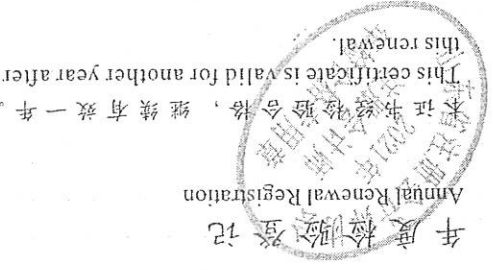 年度检验登记
Annual Renewal Registration
本证书经检验合格，继续有效一年。
This certificate is valid for another year after
this renewal.
2021年